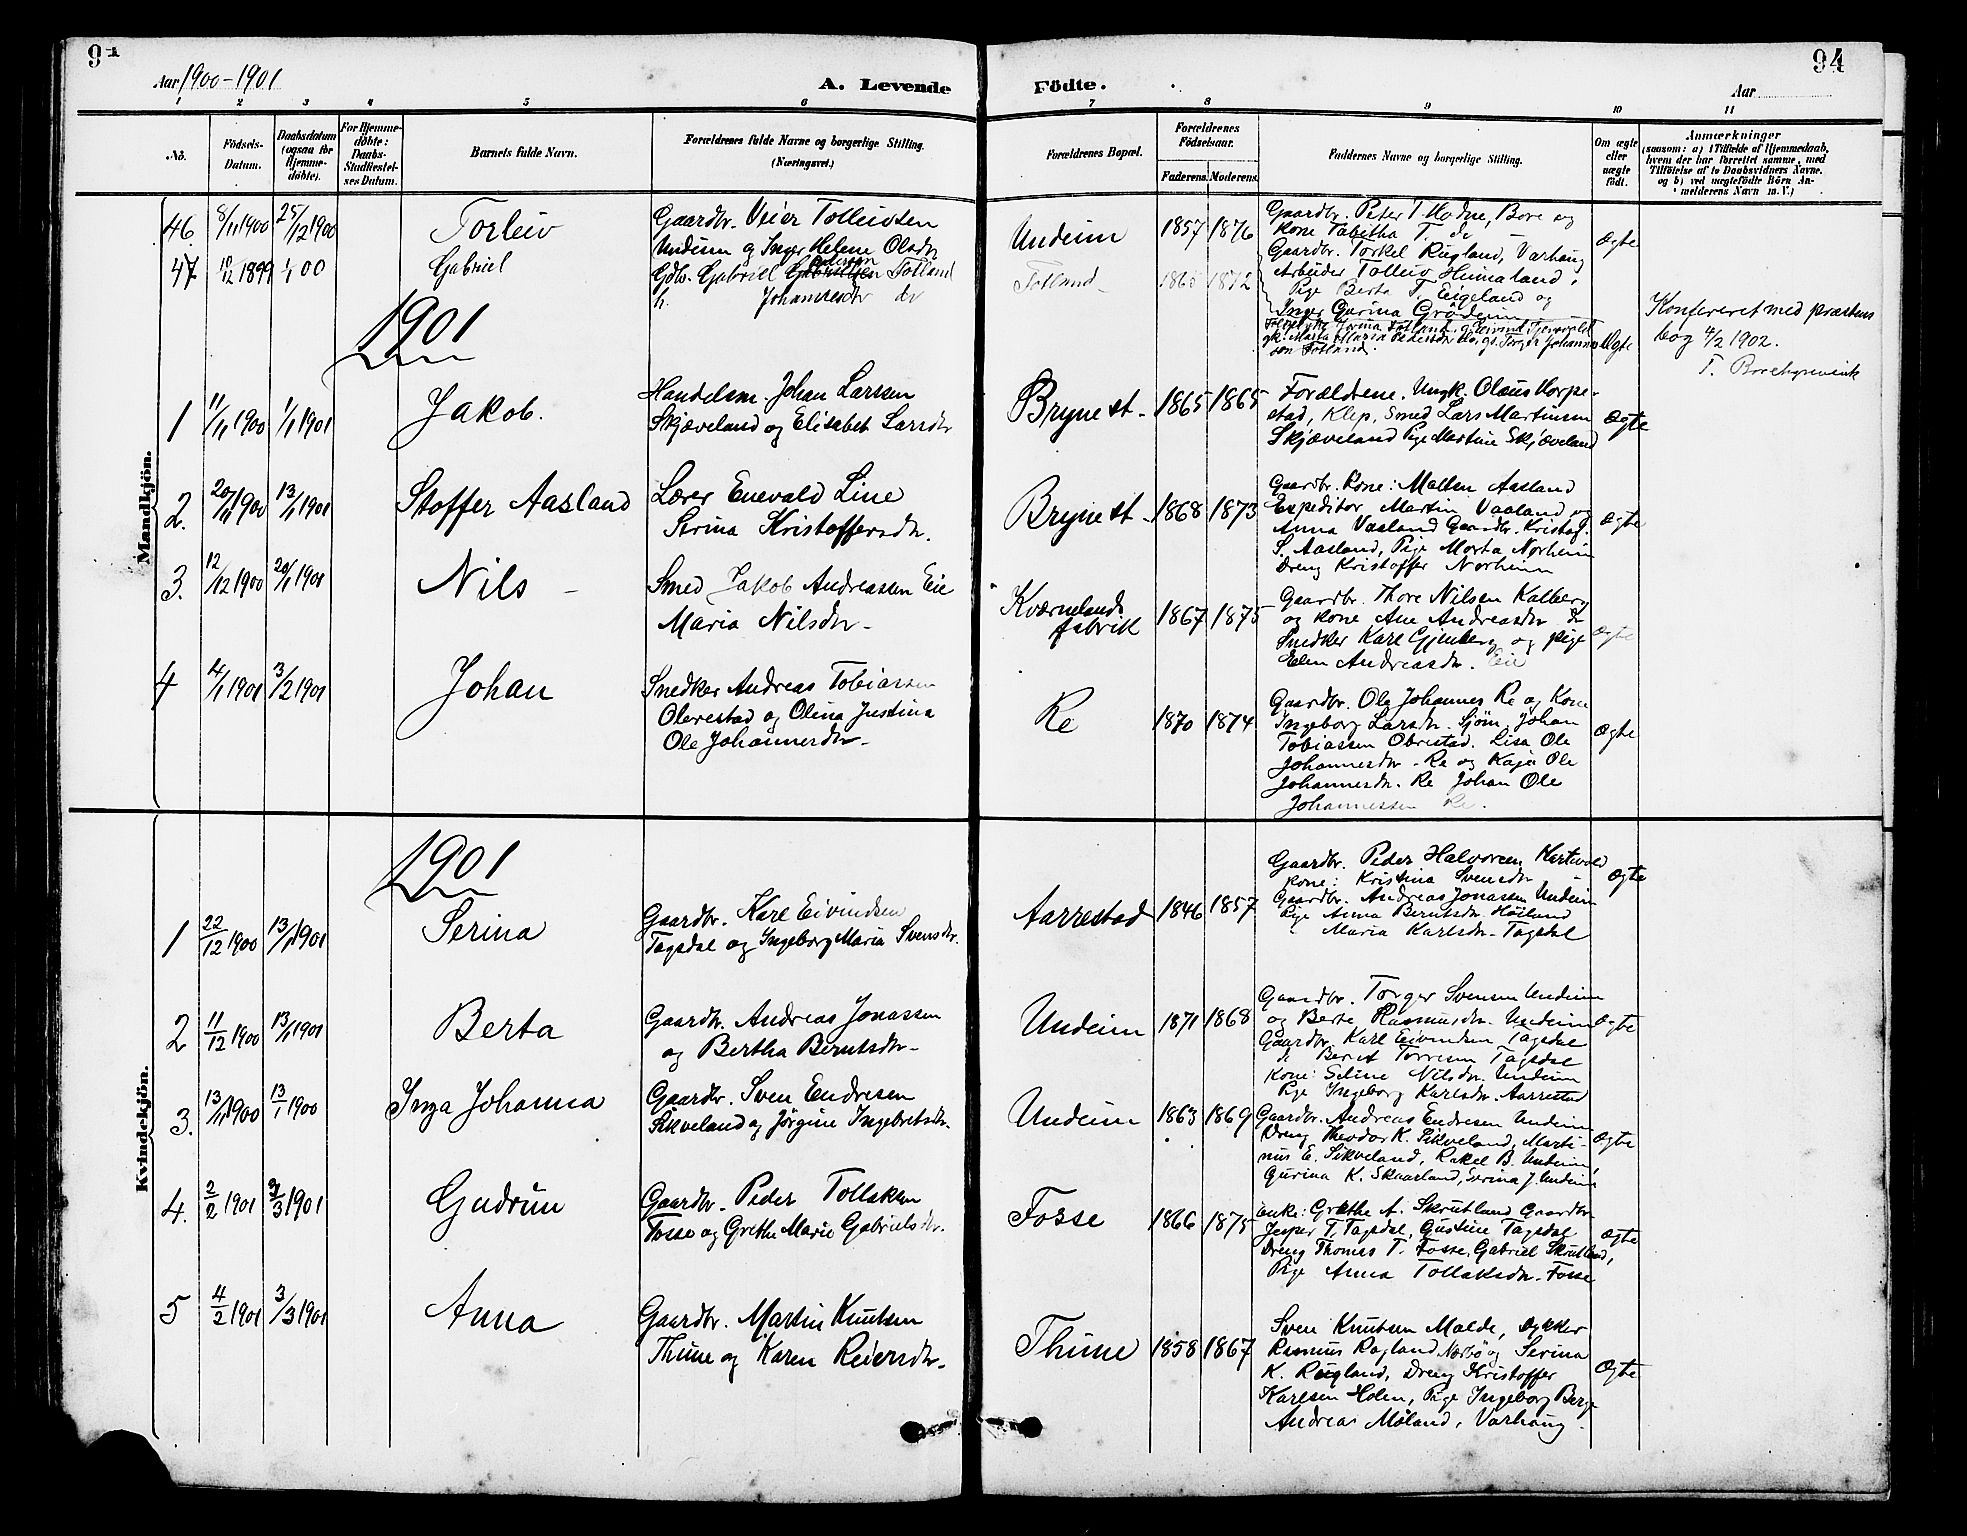 94
94
Aar 1900-1901
A. Levende Födte.
Aar
1 2 3 4 5 6 7 8 9 10 11
No.
Födsels-
Datum.
Daabsdatum
(ogsaa for
Hjemme-
döbte).
For Hjemme-
döbte:
Daabs-
Stadfæstel-
ses Datum.
Barnets fulde Navn.
Forældrenes fulde Navne og borgerlige Stilling.
(Næringsvei.)
Forældrenes Bopæl.
Forældrenes
Födselsaar.
Faderens. Moderens.
Faddernes Navne og borgerlige Stilling.
Om ægte
eller
uægte
födt.
Anmærkninger
(saasom: a) i Tilfælde af Hjemmedaab,
hvem der har forrettet samme, med
Tilföielse af to Daabsvidners Navne,
og b) ved uægtefödte Börn An-
melderens Navn m. V.)
Mandkjön.
46. 8/11 1900 25/12 1900
Torleiv
Gaardbr. Veier Tolleivsen
Undeim og Inger Helene Olsdr
Undeim
1857 1876
Gaardbr. Peter T. Hodne, Bore og
Kone Tabitha T. do
Gaardbr. Torkel Rugland, Varhaug
Arbeider Tolleiv Heimaland,
Pige Berta T. Eigeland og
Inger Gurina Gröderim
Ægte
47 10/12 1899 1/1 00
Gabriel
Gdb. Gabriel Gabrielsen Pedersen Totland
h. Johannesdr do
Totland
1865 1872
Ægte
Konfereret med præstens
bog 4/2 1902.
T. Borchgrevink
1901
1 11/11 1900 1/1 1901
Jakob.
Handelsm. Johan Larsen
Skjæveland og Elisabet Larsdr
Bryne st.
1865 1865
Forældrene. Ungk. Olaus Horpe-
stad, Klep, Smed Lars Martinsen
Skjæveland Pige Martine Skjæveland
Ægte
2. 20/11 1900 13/1 1901
Stoffer Aasland
Lærer Enevald Line
Serina Kristoffersdr.
Bryne st.
1868 1873
Gaardbr. Kone: Mallen Aasland
Expeditor Martin Vaaland og
Anna Vaaland Gaardbr. Kristof.
S. Aasland, Pige Marta Norheim
Dreng Kristoffer Norheim
Ægte
3. 12/12 1900 20/1 1901
Nils
Smed Jakob Andreassen Eie
Maria Nilsdr
Kværnelands
fabrik
1867 1875
Gaardbr. Thore Nilsen Kalberg
og Kone Ane Andreasdr do
Snedker Karl Gjenberg og pige
Elen Andreasdr. Eie
Ægte
4 4/1 1901 3/2 1901
Johan
Snedker Andreas Tobiassen
Obrestad og Olina Justina
Ole Johannesdr
Re
1870 1874
Gaardbr. Ole Johannes Re og Kone
Ingeborg Larsdr. Sjöm. Johan
Tobiassen Obrestad. Lisa Ole
Johannesdr. Re og Kaja Ole
Johannesdr. Re Johan Ole
Johannessen Re.
Ægte
Kvindekjön.
1901
1 22/12 1900 13/1 1901
Serina
Gaardbr. Karl Eivindsen
Tagsdal og Ingeborg Maria Svensdr.
Aarrestad
1846 1857
Gaardbr. Peder Halvorsen
Kone: Kristina Svensdr
Gaardbr. Andreas Jonassen Undeim
Pige Anna Berntsdr. Höiland
Maria Karlsdr. Tagsdal
Ægte
2 11/12 1900 13/1 1901
Berta
Gaardbr. Andreas Jonassen
og Bertha Berntsdr
Undeim
1871 1868
Gaardbr. Torger Svensen Undeim
og Berte Rasmusdr. Undeim
Gaardbr. Karl Eivindsen Tagsdal
Tagsdal
Kone: Seline Nilsdr. Undeim
Pige Ingeborg Karlsdr. Aarrestad
Ægte
3. 13/11 1900 13/1 1900
Inga Johanna
Gaardbr. Sven Endresen
Sikveland og Jörgine Ingebretsdr.
Undeim
1863 1869
Gaardbr. Andreas Endresen Undeim
Dreng Theodor K. Sikveland, Marti-
nus E. Sikveland, Rakel B. Undeim,
Gurina K. Skaarland, Serina J. Undeim
Ægte
4. 2/2 1901 3/3 1901
Gudrun
Gaardbr. Peder Tollaksen
Fosse og Grethe Marie Gabrielsdr.
Fosse
1866 1875
Enke: Grethe A. Skrutland Gaardbr
Jesper T. Tagsdal, Gustine Tagsdal
Dreng Thomas T. Fosse, Gabriel Skrutland,
Pige Anna Tollaksdr. Fosse
Ægte
5 4/2 1901 3/3 1901
Anna
Gaardbr. Martin Knutsen
Thime og Karen Reiersdr.
Thime
1858 1867
Sven Knutsen Malde,
Rasmus Rogland Nærbö og Serina
K. Rugland, Dreng Kristoffer
Karlsen Holen, Pige Ingeborg Berge
Andreas Möland, Varhaug
Ægte